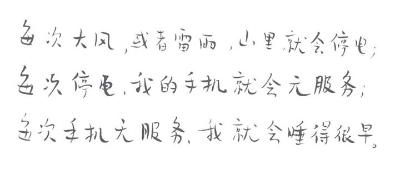 每次大风,或者雷雨,山里就会停电;
每次停电,我的手机就会无服务;
每次手机无服务,我就会睡得很早。